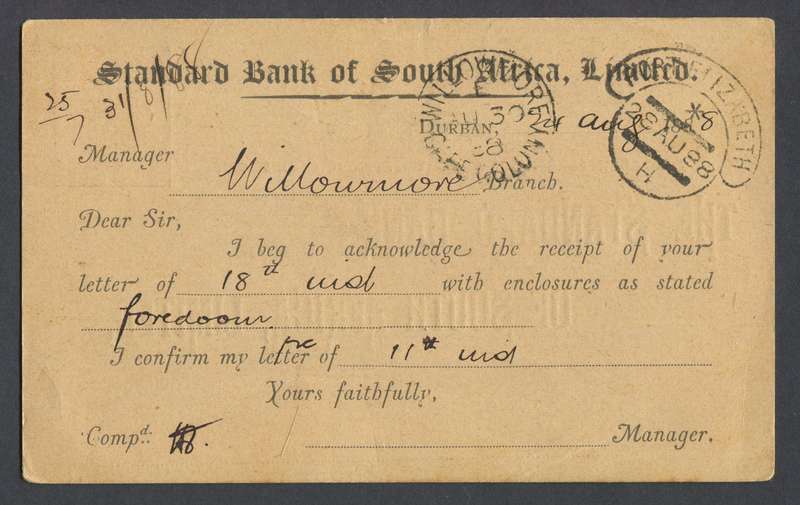 Standard Bank of South Africa, Limited.
25/7 31/8/88
DURBAN, 24 Aug 1888
Manager
Willowmore Branch.
Dear Sir,
I beg to acknowledge the receipt of your
letter of 18th inst with enclosures as stated
I confirm my letter of 11th inst
Yours faithfully,
Compd.
Manager.
WILLOWMORE
AU 30
88
COLONY
PORT ELIZABETH
28 AU 88
H